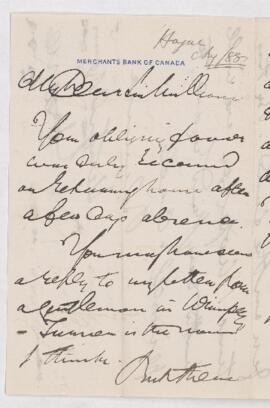 Hague
/85
MERCHANTS BANK OF CANADA
My Dear Sir William
Your obliging favor
was duly received
on returning home after
a few days absence.
You may have seen
a reply to my letter from
a gentleman in Winnipeg
- is the name
I think.
But there